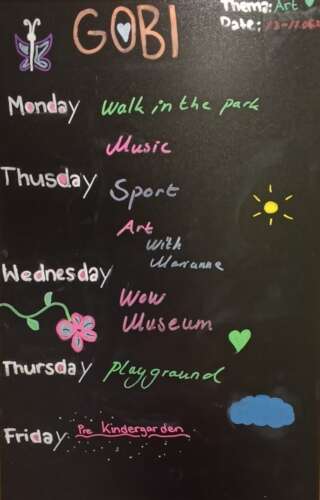 GOBI
Thema: Art
Date:
Monday Walk in the park
Music
Thusday Sport
Art
With
Marianne
Wednesday
Wow
Museum
Thursday Playground
Friday Pre Kindergarden